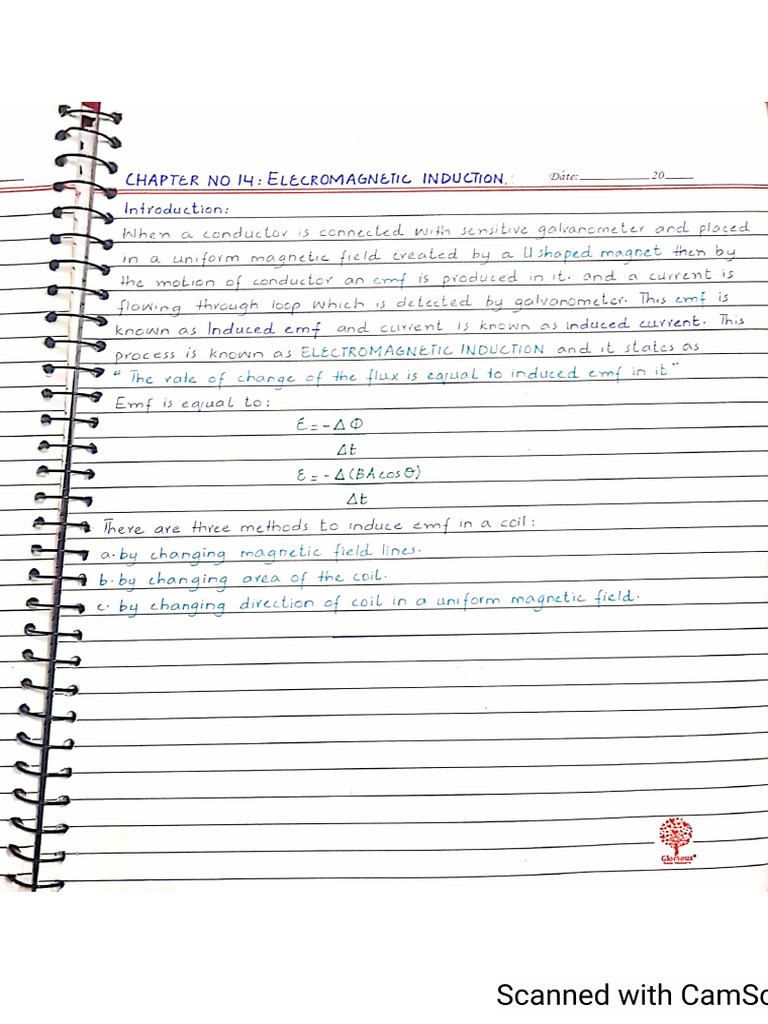 CHAPTER NO 14: ELECROMAGNETIC INDUCTION. Date:__________ 20____
Introduction:
When a conductor is connected with sensitive galvanometer and placed
in a uniform magnetic field created by a U shaped magnet then by
the motion of conductor an emf is produced in it. and a current is
flowing through loop which is detected by galvanometer. This emf is
known as Induced emf and current is known as induced current. This
process is known as ELECTROMAGNETIC INDUCTION and it states as
"The rate of change of the flux is equal to induced emf in it"
Emf is equal to:
Ɛ = -ΔΦ
Δt
Ɛ = -Δ(BAcosθ)
Δt
There are three methods to induce emf in a coil:
a. by changing magnetic field lines.
b. by changing area of the coil.
c. by changing direction of coil in a uniform magnetic field.
Glorious
Scanned with CamSc